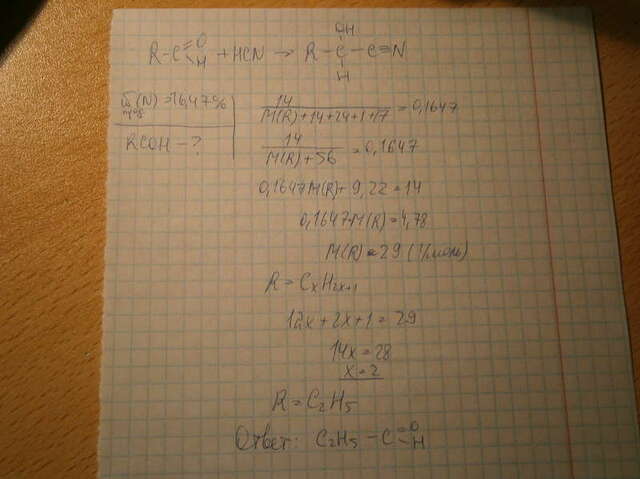 OH
R-C=O H + HCN → R-C-C≡N
H
ω(N) = 16,47%
прод
RCOH - ?
14 / M(R)+14+24+1+17 = 0,1647
14 / M(R)+56 = 0,1647
0,1647M(R) + 9,22 = 14
0,1647M(R) = 4,78
M(R) = 29 (г/моль)
R = CxH2x+1
12x + 2x + 1 = 29
14x = 28
x = 2
R = C2H5
Ответ: C2H5 - C=O H